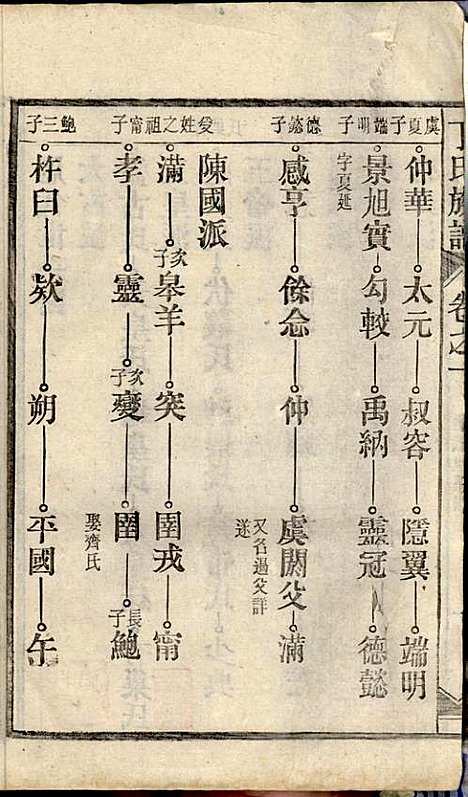 丁氏族譜
卷之一
虞夏子
仲華 太元 叔容 隱翼 端明
端明子
景旭實 勾較 禹納 靈冠 德懿
字夏延
德懿子
咸亨 餘念 仲 虞閼父 滿
又名遏父詳
遂
陳國派
受姓之祖
滿 次子 皋羊 突 圉戎 甯
甯子
孝 靈 次子 變 圉 長子 鮑
娶齊氏
鮑三子
杵臼 欵 朔 平國 午